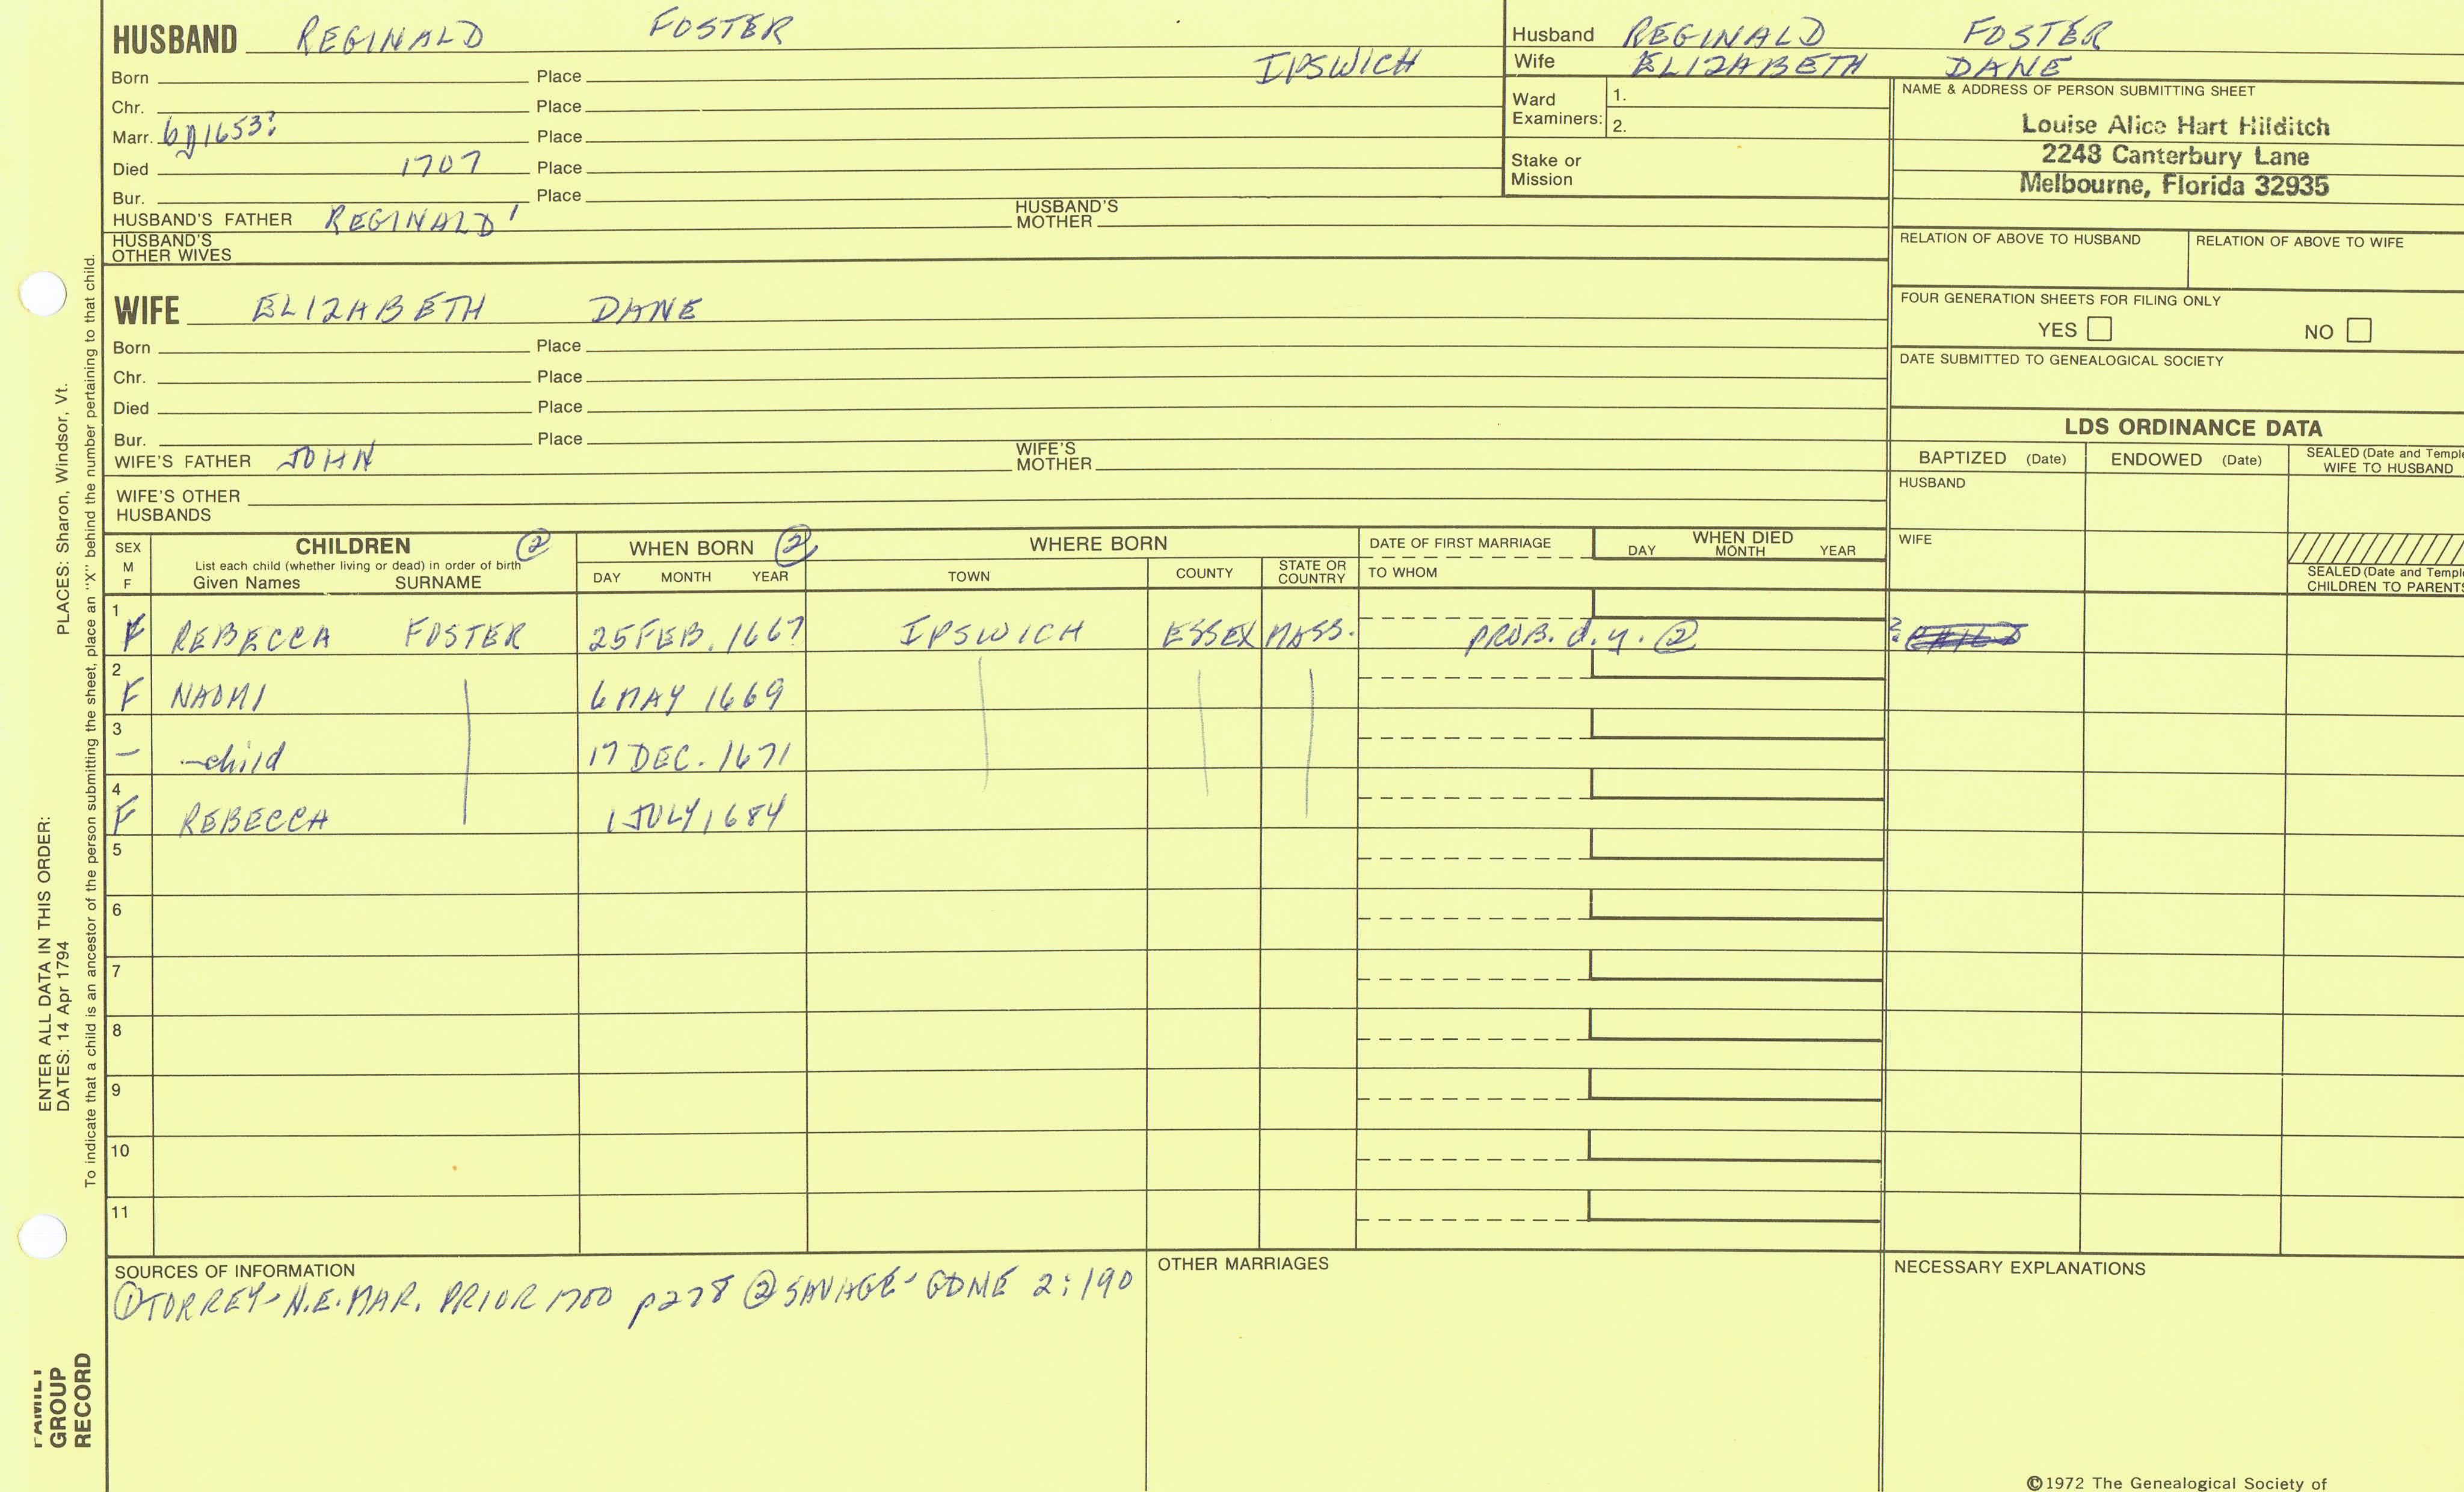 HUSBAND REGINALD FOSTER
IPSWICH
Born Place
Chr. Place
Marr. 1653? Place
Died 1707 Place
Bur. Place
HUSBAND'S FATHER REGINALD' HUSBAND'S MOTHER
HUSBAND'S OTHER WIVES
Husband REGINALD FOSTER
Wife ELIZABETH DANE
Ward Examiners: 1.
2.
Stake or Mission
NAME & ADDRESS OF PERSON SUBMITTING SHEET
Louise Alice Hart Hilditch
2248 Canterbury Lane
Melbourne, Florida 32935
RELATION OF ABOVE TO HUSBAND RELATION OF ABOVE TO WIFE
FOUR GENERATION SHEETS FOR FILING ONLY
YES NO
DATE SUBMITTED TO GENEALOGICAL SOCIETY
WIFE ELIZABETH DANE
Born Place
Chr. Place
Died Place
Bur. Place
WIFE'S FATHER JOHN WIFE'S MOTHER
WIFE'S OTHER HUSBANDS
LDS ORDINANCE DATA
BAPTIZED (Date) ENDOWED (Date) SEALED (Date and Temple
WIFE TO HUSBAND
HUSBAND
WIFE
SEALED (Date and Temple
CHILDREN TO PARENTS
SEX M F
CHILDREN ②
List each child (whether living or dead) in order of birth
Given Names SURNAME
WHEN BORN ②
DAY MONTH YEAR
WHERE BORN
TOWN COUNTY STATE OR COUNTRY
DATE OF FIRST MARRIAGE
TO WHOM
WHEN DIED
DAY MONTH YEAR
1 F REBECCA FOSTER 25 FEB. 1667 IPSWICH ESSEX MASS. PROB. d.y. ②
2 F NAOMI 6 MAY 1669
3 – –child 17 DEC. 1671
4 F REBECCA 1 JULY 1684
5
6
7
8
9
10
11
SOURCES OF INFORMATION
① TORREY- N.E. MAR. PRIOR 1700 p278 ② SAVAGE- GDNE 2:190
OTHER MARRIAGES
NECESSARY EXPLANATIONS
©1972 The Genealogical Society of
PLACES: Sharon, Windsor, Vt.
ENTER ALL DATA IN THIS ORDER:
DATES: 14 Apr 1794
To indicate that a child is an ancestor of the person submitting the sheet, place an "X" behind the number pertaining to that child.
FAMILY
GROUP
RECORD